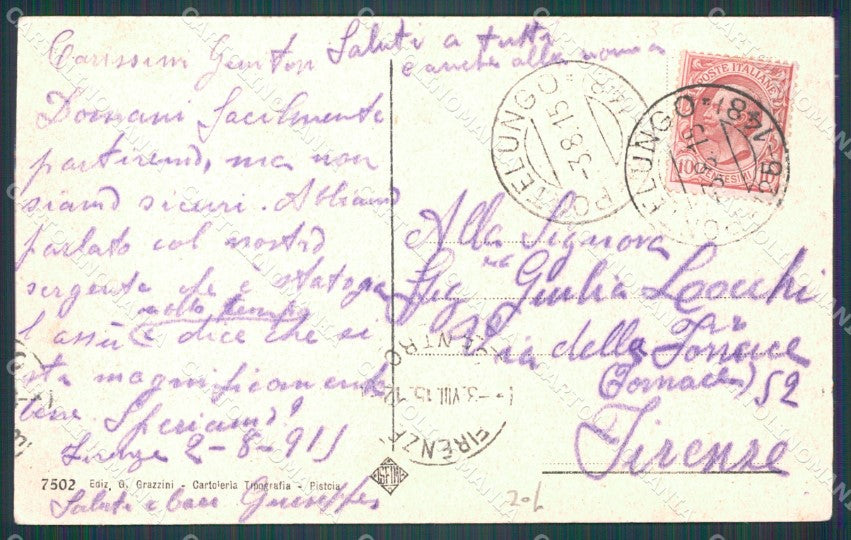 Carissimi Genitori
Saluti a tutti
e anche alla nonna
Domani facilmente
partiremo, ma non
siamo sicuri. Abbiamo
parlato col nostro
sergente che è stato
molto tempo
e dice che si
sta magnificamente
bene Speriamo!
Firenze 2-8-915
Saluti e baci Giuseppe
7502 Ediz. G. Grazzini - Cartoleria Tipografia - Pistoia
POSTE ITALIANE
PONTELUNGO
3.8.15
Alla Signora
Sig.na Giulia Locchi
Via della Fornace
(Fornace) 52
Firenze
FIRENZE CENTRO
3.VIII.15